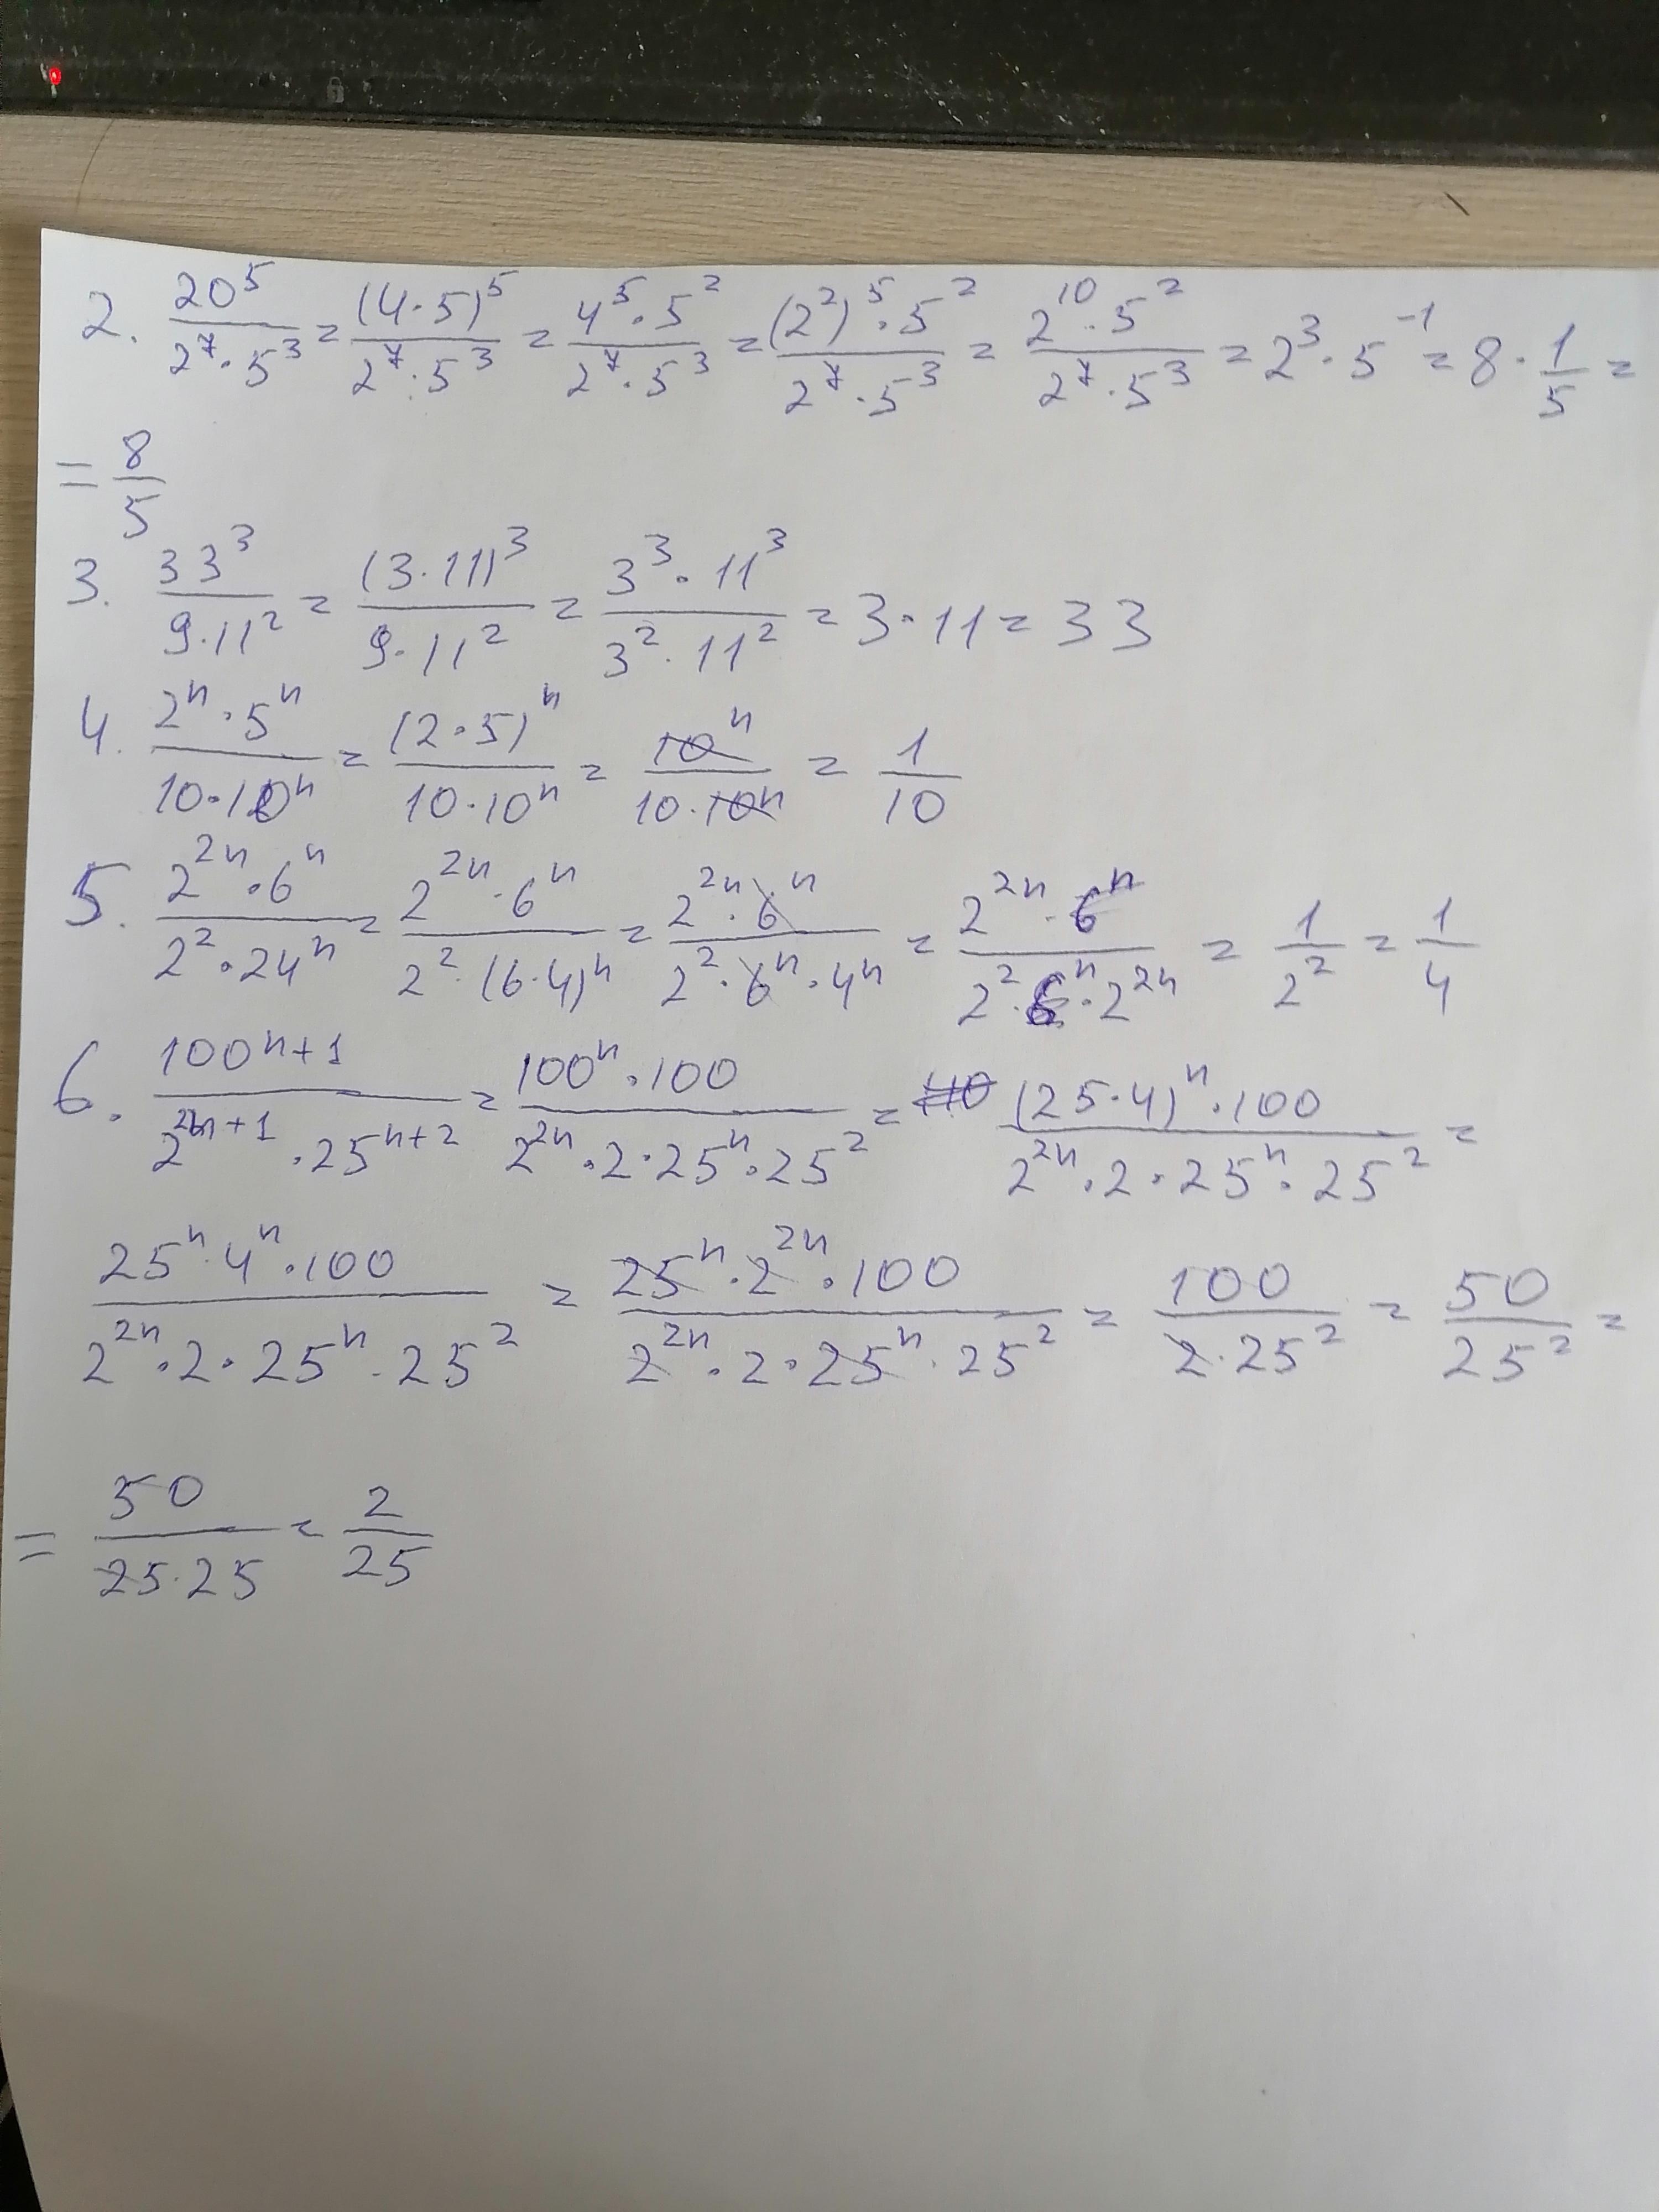 2. 20^5/(2^7·5^3) = (4·5)^5/(2^7·5^3) = (4^5·5^2)/(2^7·5^3) = ((2^2)^5·5^2)/(2^7·5^3) = (2^10·5^2)/(2^7·5^3) = 2^3·5^-1 = 8·1/5 =
= 8/5
3. 33^3/(9·11^2) = (3·11)^3/(9·11^2) = (3^3·11^3)/(3^2·11^2) = 3·11 = 33
4. (2^n·5^n)/(10·10^n) = (2·5)^n/(10·10^n) = 10^n/(10·10^n) = 1/10
5. (2^2n·6^n)/(2^2·24^n) = (2^2n·6^n)/(2^2·(6·4)^n) = (2^2n·6^n)/(2^2·6^n·4^n) = (2^2n·6^n)/(2^2·6^n·2^2n) = 1/2^2 = 1/4
6. 100^(n+1)/(2^(2n+1)·25^(n+2)) = (100^n·100)/(2^2n·2·25^n·25^2) = ((25·4)^n·100)/(2^2n·2·25^n·25^2) =
(25^n·4^n·100)/(2^2n·2·25^n·25^2) = (25^n·2^2n·100)/(2^2n·2·25^n·25^2) = 100/(2·25^2) = 50/25^2 =
= 50/(25·25) = 2/25